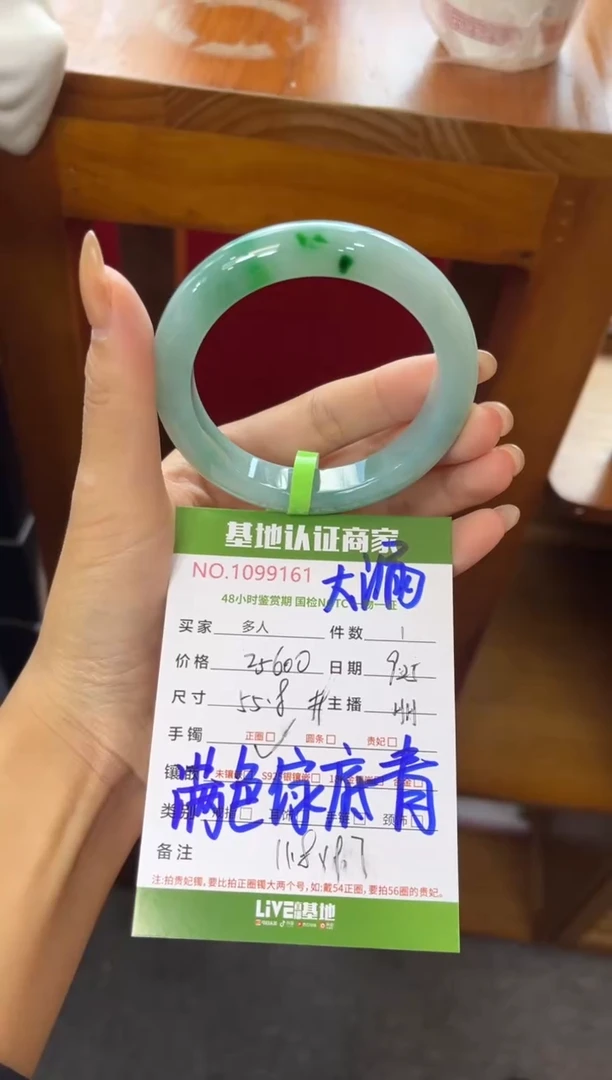 基地认证商家
NO.1099161
大漏
48小时鉴赏期 国检N TC 物一证
买家 多人 件数 1
价格 25600 日期 9.25
尺寸 55.8 # 主播
手镯 正圈□ ✓ 圆条□ 贵妃□
镶嵌 未镶嵌 S925银镶嵌□
满色绿底青
类别
备注 11.8 9.7
注:拍贵妃镯,要比拍正圈镯大两个号,如:戴54正圈,要拍56圈的贵妃。
LIVE基地